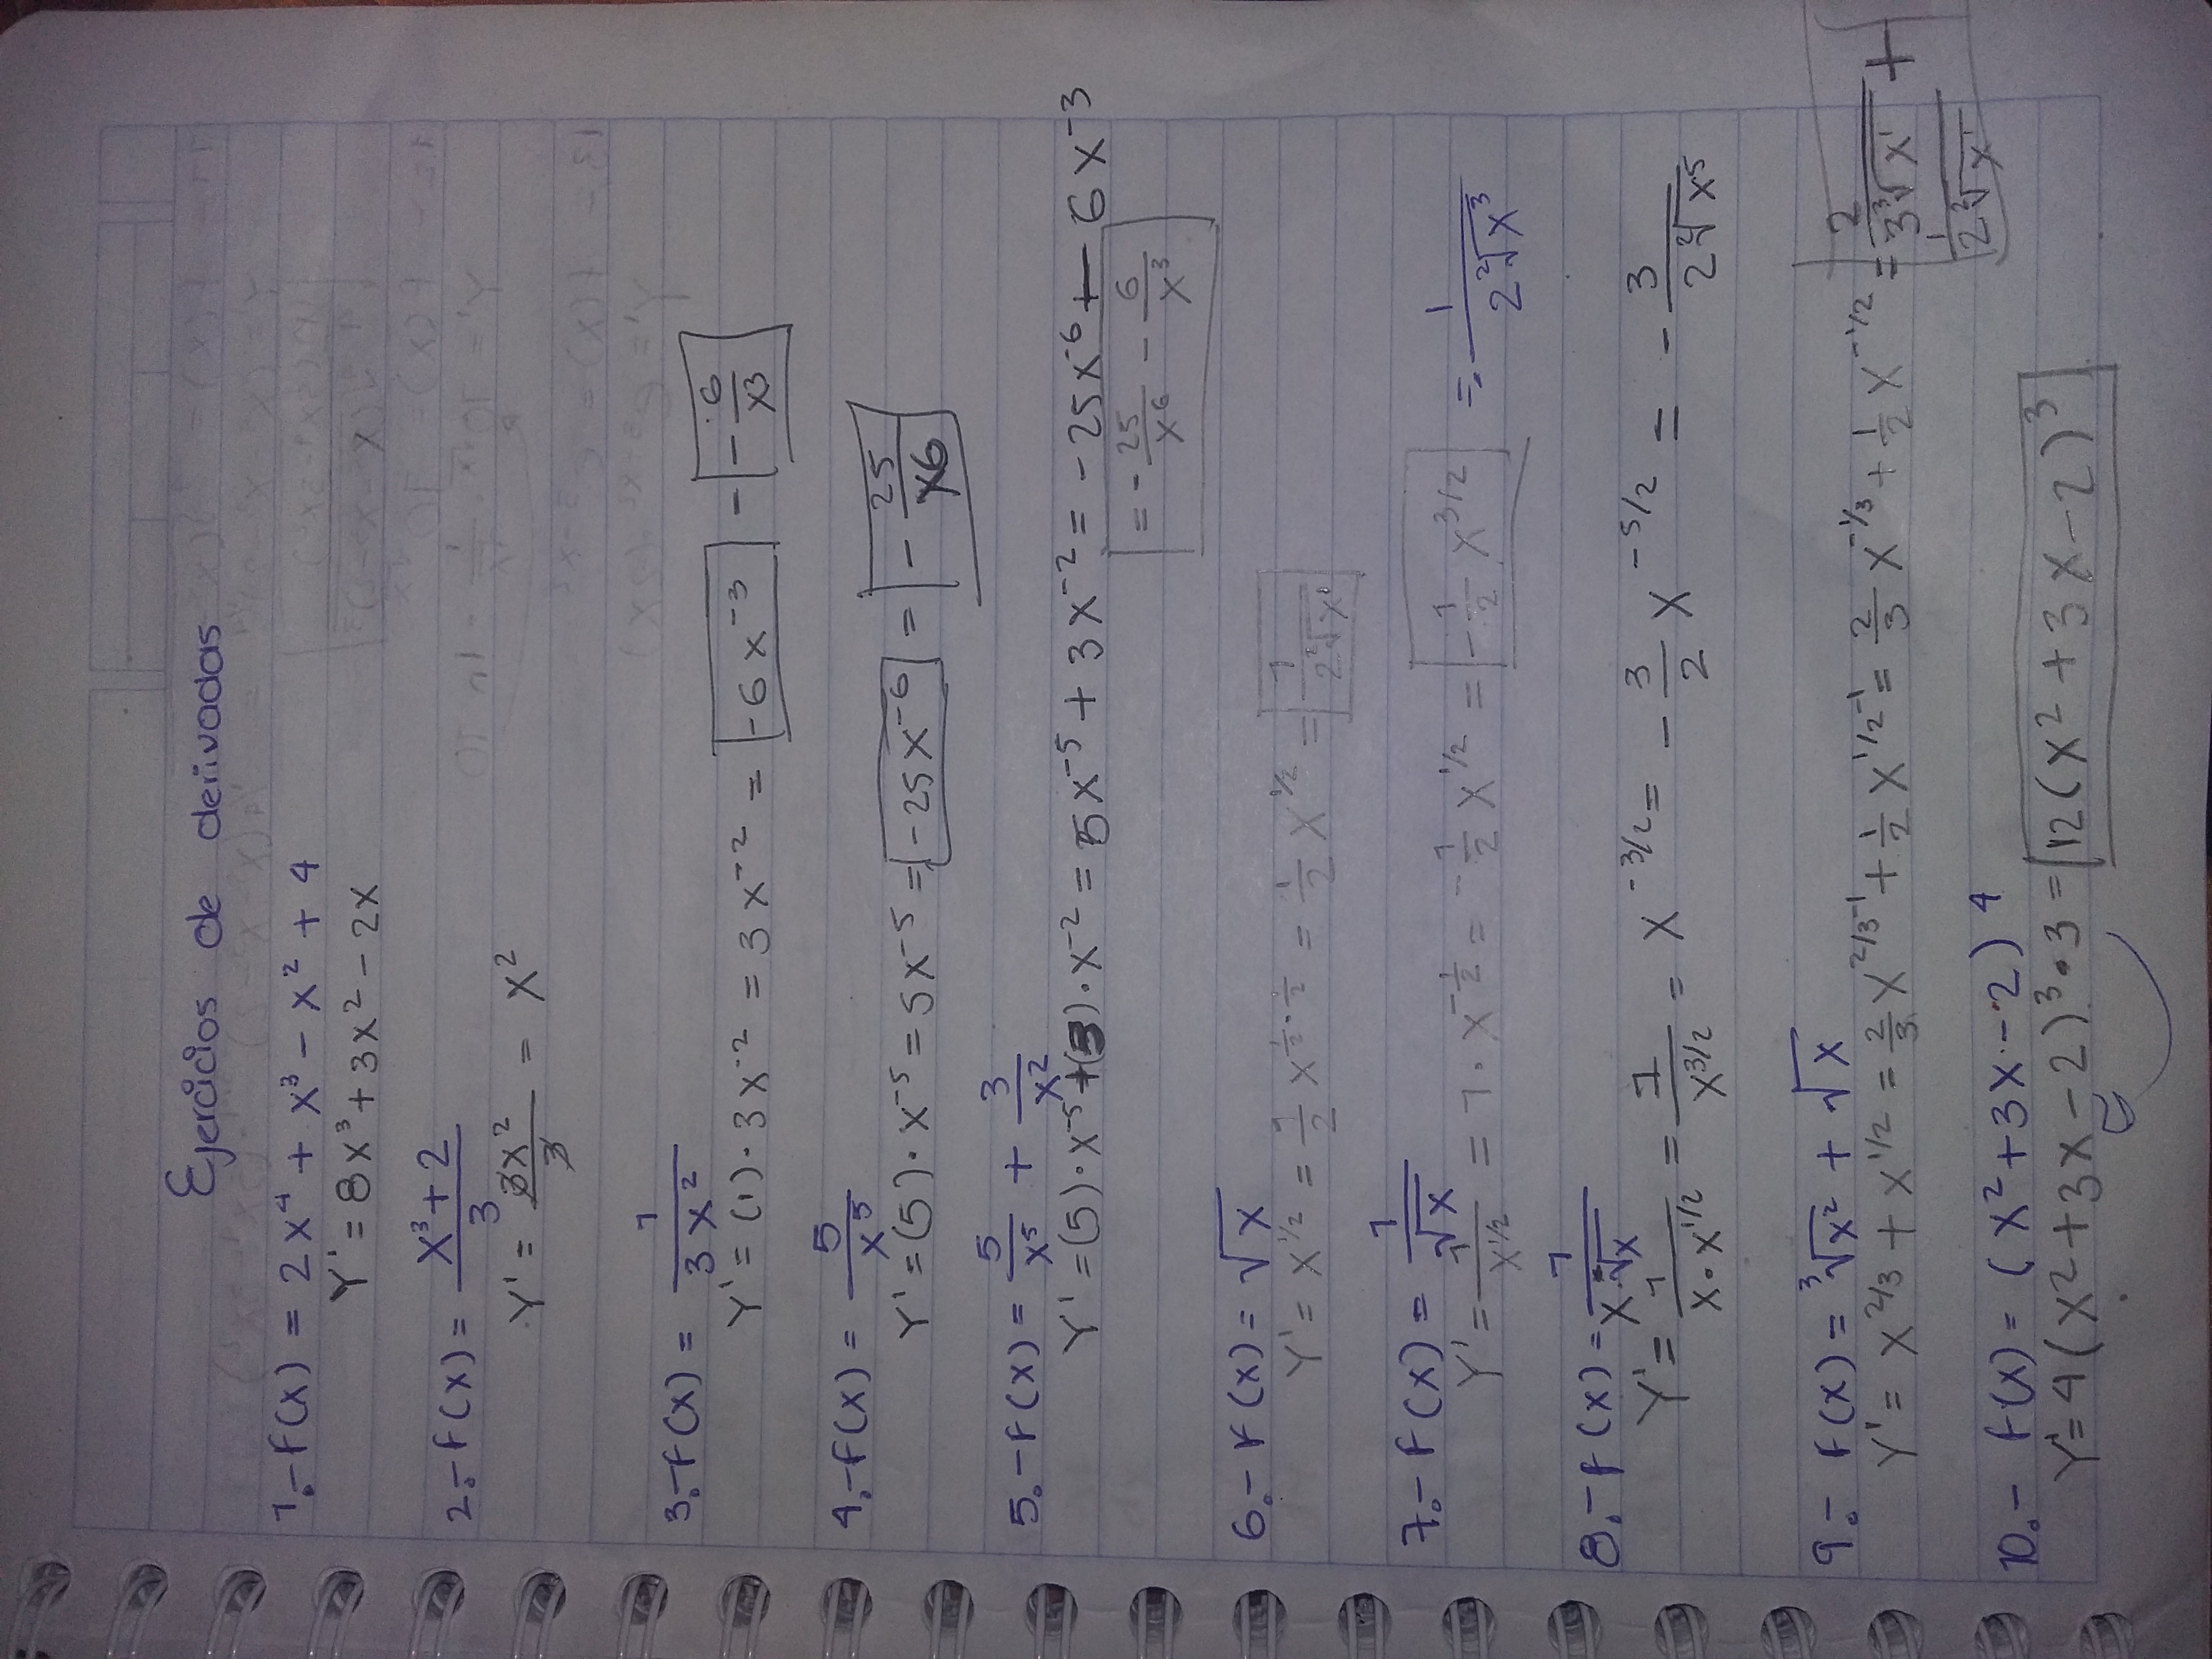 Ejercicios de derivadas
1.- f(x) = 2x⁴ + x³ - x² + 4
Y' = 8x³ + 3x² - 2x
2.- f(x) = (x³ + 2)/3
Y' = 3x²/3 = x²
3.- f(x) = 1/(3x²)
Y' = (1)·3x⁻² = 3x⁻² = -6x⁻³ = -6/x³
4.- f(x) = 5/x⁵
Y' = (5)·x⁻⁵ = 5x⁻⁵ = -25x⁻⁶ = -25/x⁶
5.- f(x) = 5/x⁵ + 3/x²
Y' = (5)·x⁻⁵ + (3)·x⁻² = 5x⁻⁵ + 3x⁻² = -25x⁻⁶ - 6x⁻³
= -25/x⁶ - 6/x³
6.- f(x) = √x
Y' = x^1/2 = 1/2 x^(1/2·1/2) = 1/2 x^1/2 = 1/(2 ²√x¹)
7.- f(x) = 1/√x
Y' = 1/x^1/2 = 1·x^-1/2 = -1/2 x^1/2 = -1/2 x^3/2 = 1/(2 ²√x³)
8.- f(x) = 1/(x·√x)
Y' = 1/(x·x^1/2) = 1/x^3/2 = x^-3/2 = -3/2 x^-5/2 = -3/(2 ²√x⁵)
9.- f(x) = ³√x² + √x
Y' = x^2/3 + x^1/2 = 2/3 x^(2/3-1) + 1/2 x^(1/2-1) = 2/3 x^-1/3 + 1/2 x^-1/2 = 2/(3 ³√x¹) +
1/(2 ²√x¹)
10.- f(x) = (x² + 3x - 2)⁴
Y' = 4(x² + 3x - 2)³·3 = 12(x² + 3x - 2)³